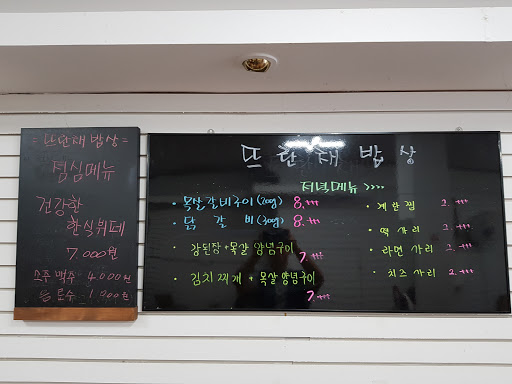 = 뜨란채 밥상 =
점심메뉴
건강한
한식뷔페
7.000원
소주 맥주 4000원
음료수 1000원
뜨란채 밥상
저녁메뉴 >>>>
· 목살 갈비구이 (200g) 8.
· 닭 갈 비 (300g) 8.
· 강된장 + 목살 양념구이
7.
· 김치찌개 + 목살 양념구이
7.
· 계란찜 2.
· 떡 사리 2.
· 라면 사리 2.
· 치즈 사리 2.